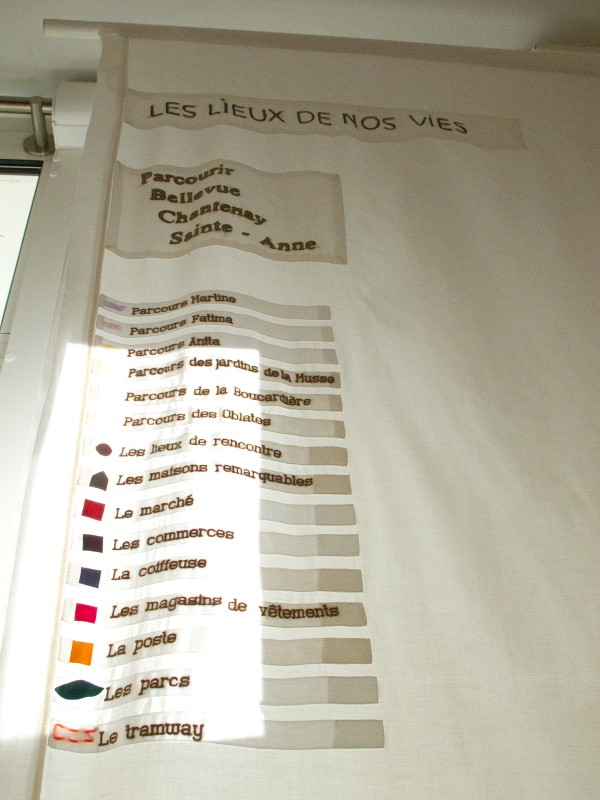 LES LIEUX DE NOS VIES
Parcourir
Bellevue
Chantenay
Sainte - Anne
Parcours Martine
Parcours Fatima
Parcours Anita
Parcours des jardins de la Musse
Parcours de la Boucardière
Parcours des Oblates
Les lieux de rencontre
Les maisons remarquables
Le marché
Les commerces
La coiffeuse
Les magasins de vêtements
La poste
Les parcs
Le tramway